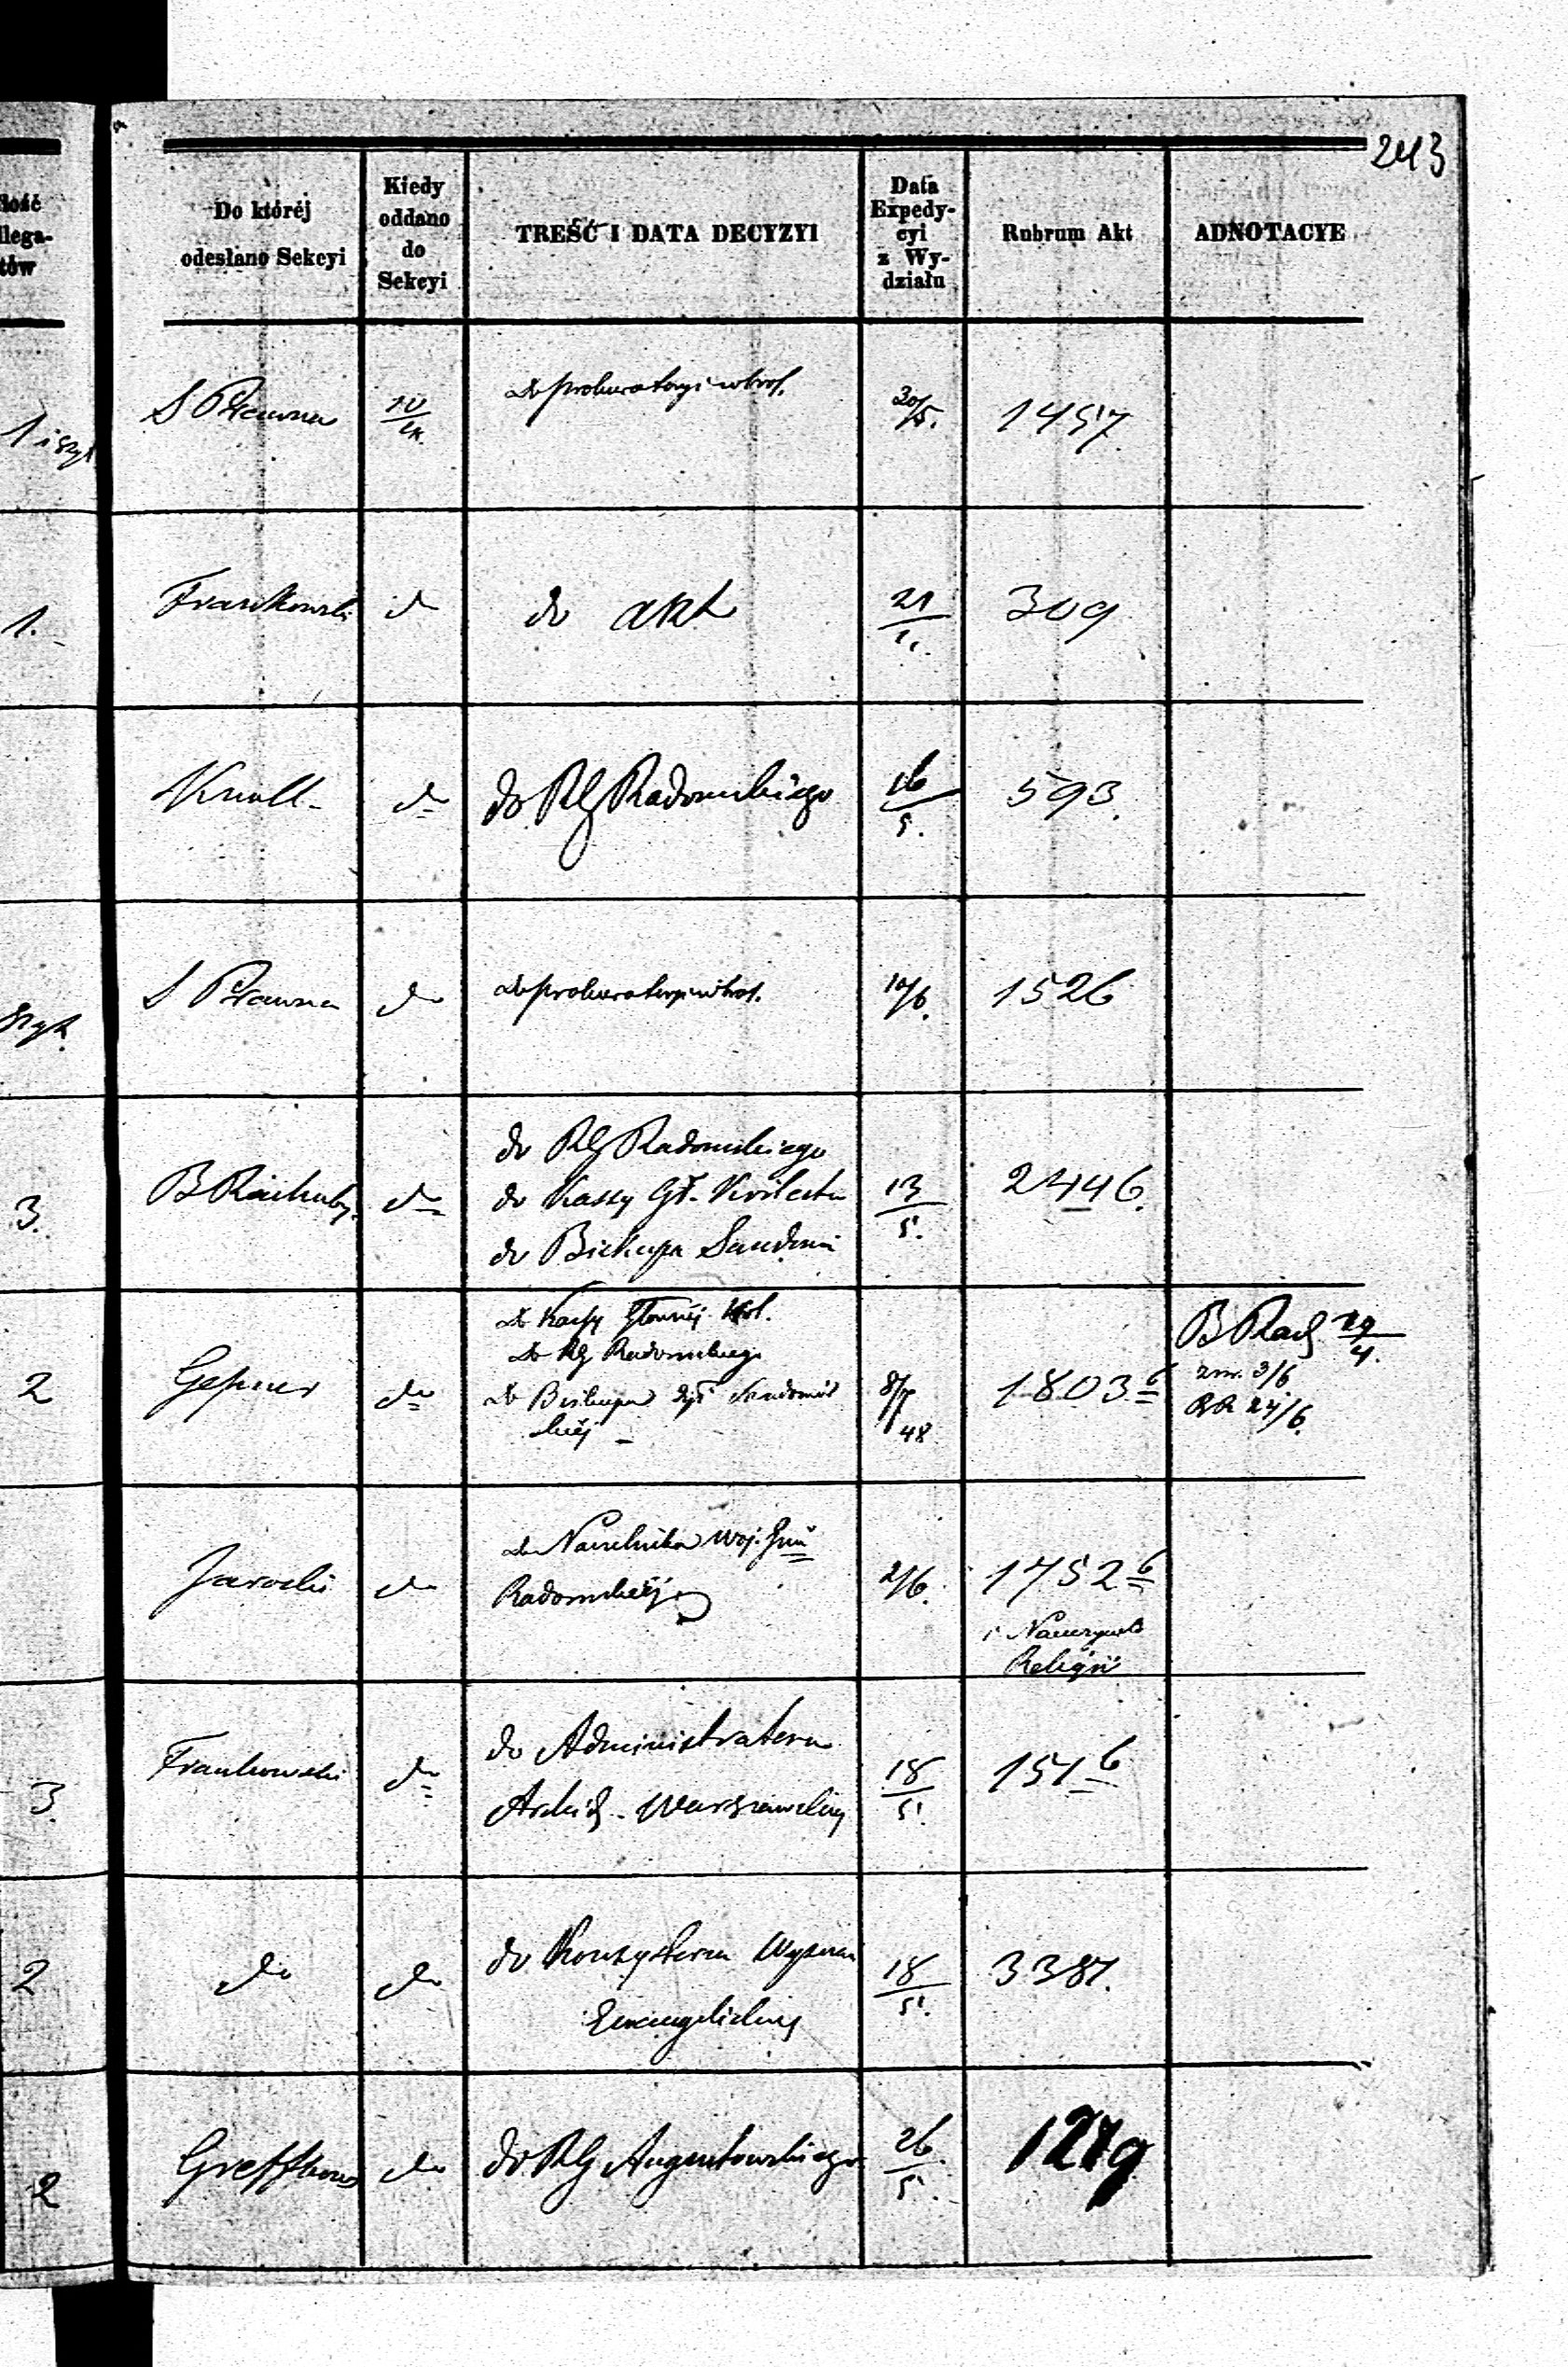 243
Ilość
Allega-
tów
Do któréj
odesłano Sekcyi
Kiedy
oddano
do
Sekcyi
TREŚĆ I DATA DECYZYI
Data
Expedy-
cyi
z Wy-
działu
Rubrum Akt
ADNOTACYE
S Prawna
do prokuratoryi
20/5.
1457
1.
Frankowski
do
do akt
21
309
Knoll
do
do RG Radomskiego
16/5.
593.
S Prawna
do
do prokuratoryi
10/6.
1526
3.
B Rachuby
do
do RG Radomskiego
do Kassy Gł. Królestw
do Biskupa Sandomi
13/5.
2446.
2
Gepner
do
do Kassy Głownéj Król.
do RG Radomskiego
do Biskupa Dyi Sandomir
skiéj
48
1803 6
B Rach 29/4.
zwr. 3/6
BR 24/6.
Jarocki
do
do Naczelnika Woj. Gub
Radomskiéj
2/6.
1752 6
Religii
3.
Frankowski
do
do Administratora
Archid. Warszawskiej
18/5.
151 6
2
do
do
do Konsystorza Wyznań
Ewangelickiej
18/5.
3387.
2
do
do RG Augustowskiego
26/5.
1279